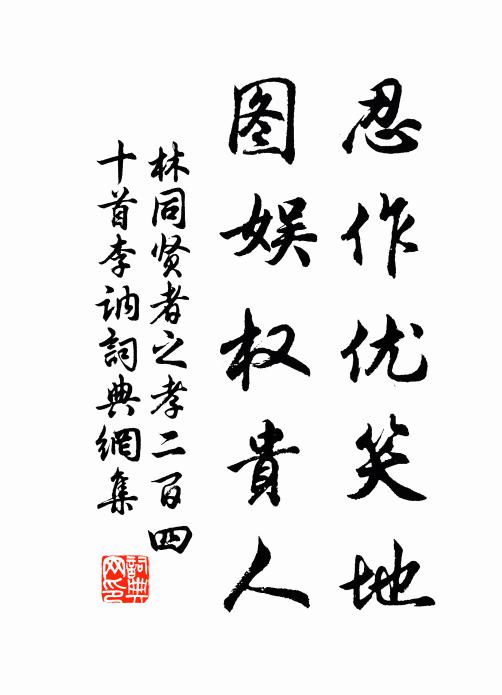 忍作优笑地
图娱权貴人
林同贤者之孝二百四
十首李讷詞典網集
詞典
网印